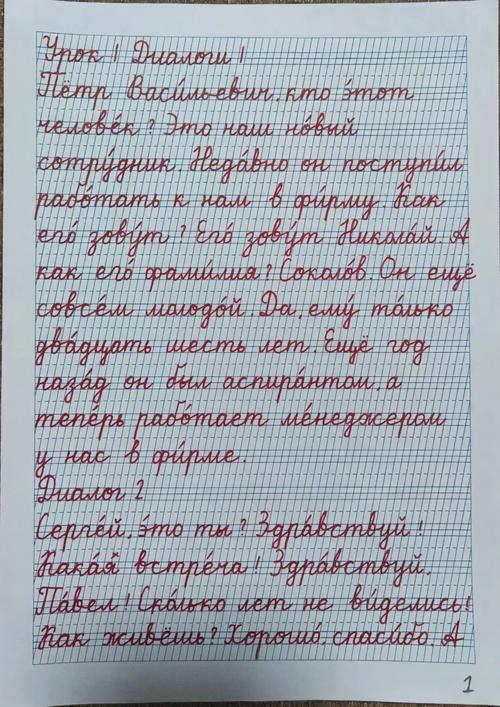 Урок 1 Диалоги 1
Пётр Васи́льевич, кто э́тот
челове́к? Это наш но́вый
сотру́дник. Неда́вно он поступи́л
рабо́тать к нам в фи́рму. Как
его́ зову́т? Его́ зову́т Никола́й. А
как его́ фами́лия? Соколо́в. Он ещё
совсе́м молодо́й. Да, ему́ то́лько
два́дцать шесть лет. Ещё год
наза́д он был аспира́нтом, а
тепе́рь рабо́тает ме́неджером
у нас в фи́рме.
Диалог 2
Серге́й, э́то ты? Здра́вствуй!
Кака́я встре́ча! Здра́вствуй,
Па́вел! Ско́лько лет не ви́делись!
Как живёшь? Хорошо́, спаси́бо. А
1